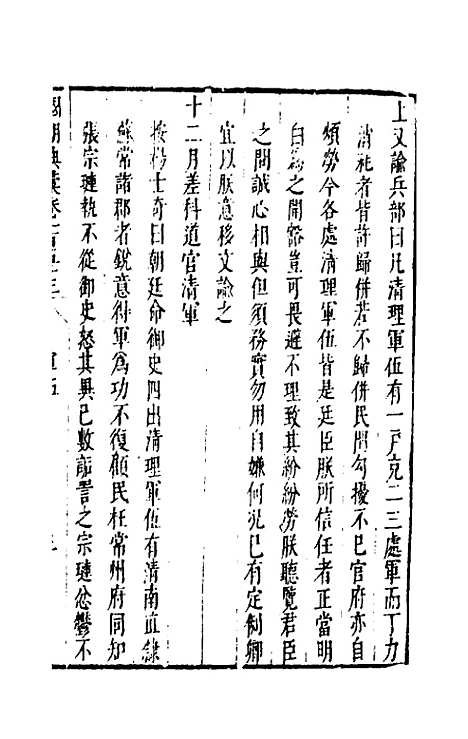 上又諭兵部曰凡清理軍伍有一戸充二三處軍而丁力
消耗者皆許歸併若不歸併民間勾擾不已官府亦自
煩勞今各處清理軍伍皆是廷臣朕所信任者正當明
白為之開豁豈可畏避不理致其紛紛勞朕聽覽君臣
之間誠心相與但須務實勿用自嫌何況已有定制卿
宜以朕意移文諭之
十二月差科道官清軍
按楊士奇曰朝廷命御史四出清理軍伍有清南直隸
蘇常諸郡者銳意得軍為功不復顧民枉常州府同知
張宗璉執不從御史怒其異已數詬詈之宗璉忿鬱不
國朝典彙卷一百五十三 軍伍